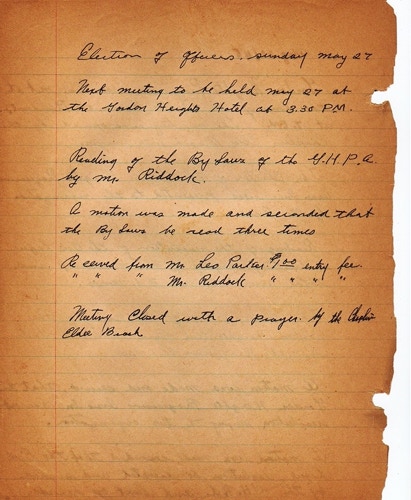 Election of officers. Sunday May 27
Next meeting to be held May 27 at
the Gordon Heights Hotel at 3.30 P.M.
Reading of the By Laws of the G.H.P.A.
by Mr. Riddock.
A motion was made and seconded that
the By Laws be read three times
Received from Mr. Leo Parker. $1.00 entry fee.
" " " Mr. Riddock " " " "
Meeting Closed with a Prayer. by the Chaplin
Elder